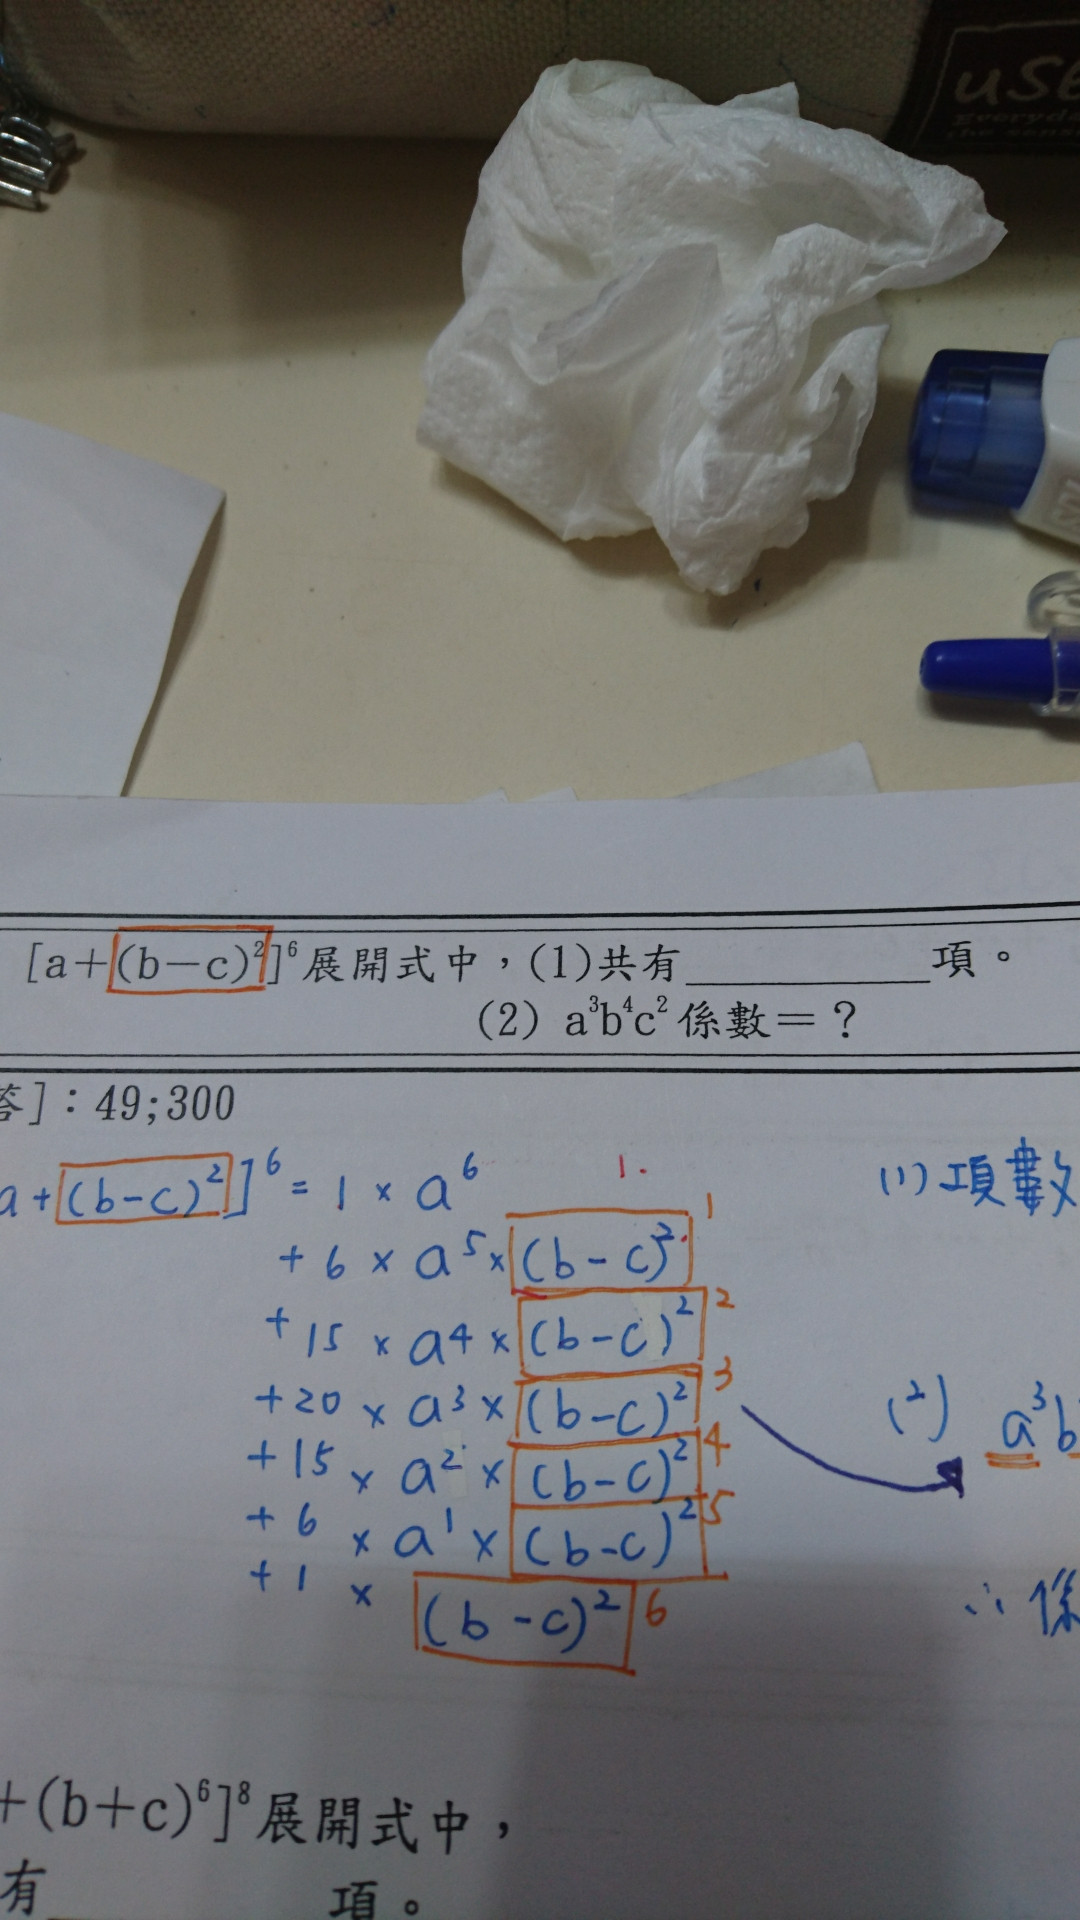 use
everyday
[a+(b-c)²]⁶展開式中,(1)共有________項。
(2) a³b⁴c²係數=?
答]:49;300
a+(b-c)²]⁶ = 1 × a⁶
1.
+ 6 × a⁵ × (b-c)² ¹
+ 15 × a⁴ × (b-c)² ²
+ 20 × a³ × (b-c)² ³
+ 15 × a² × (b-c)² ⁴
+ 6 × a¹ × (b-c)² ⁵
+ 1 × (b-c)² ⁶
(1) 項數
(2) a³b
∴係
+(b+c)⁶]⁸展開式中,
有________項。